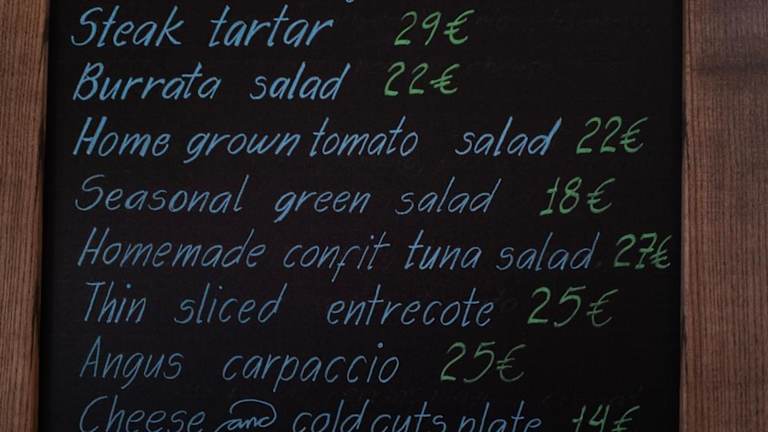 Steak tartar 29€
Burrata salad 22€
Home grown tomato salad 22€
Seasonal green salad 18€
Homemade confit tuna salad 27€
Thin sliced entrecote 25€
Angus carpaccio 25€
Cheese and cold cuts plate 14€